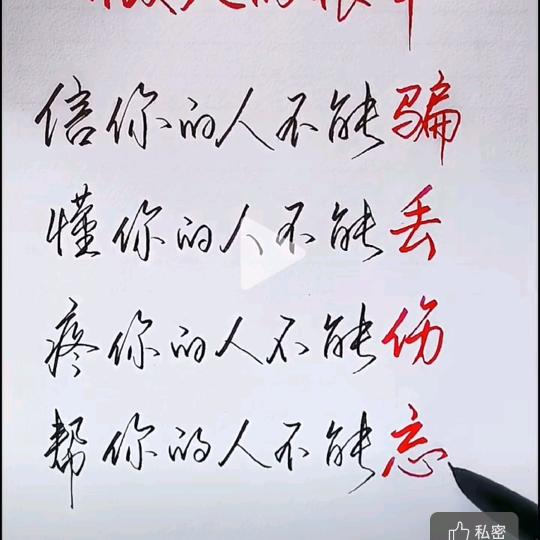 做人的根本
信你的人不能骗
懂你的人不能丢
疼你的人不能伤
帮你的人不能忘
私密